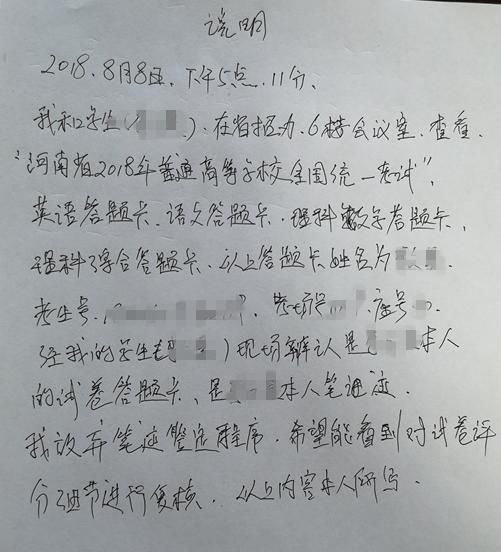 说明
2018.8月8日,下午5点.11分、
我和学生( ).在省招办.6楼会议室.查看.
“河南省2018年普通高等学校全国统一考试”,
英语答题卡、语文答题卡、理科数学答题卡、
理科综合答题卡、以上答题卡姓名为
考生号. 考场号 .座号
经我的学生 )现场辨认是 本人
的试卷答题卡、是 本人笔迹.
我放弃笔迹鉴定程序.希望能看到对试卷评
分细节进行复核. 以上内容本人所写.